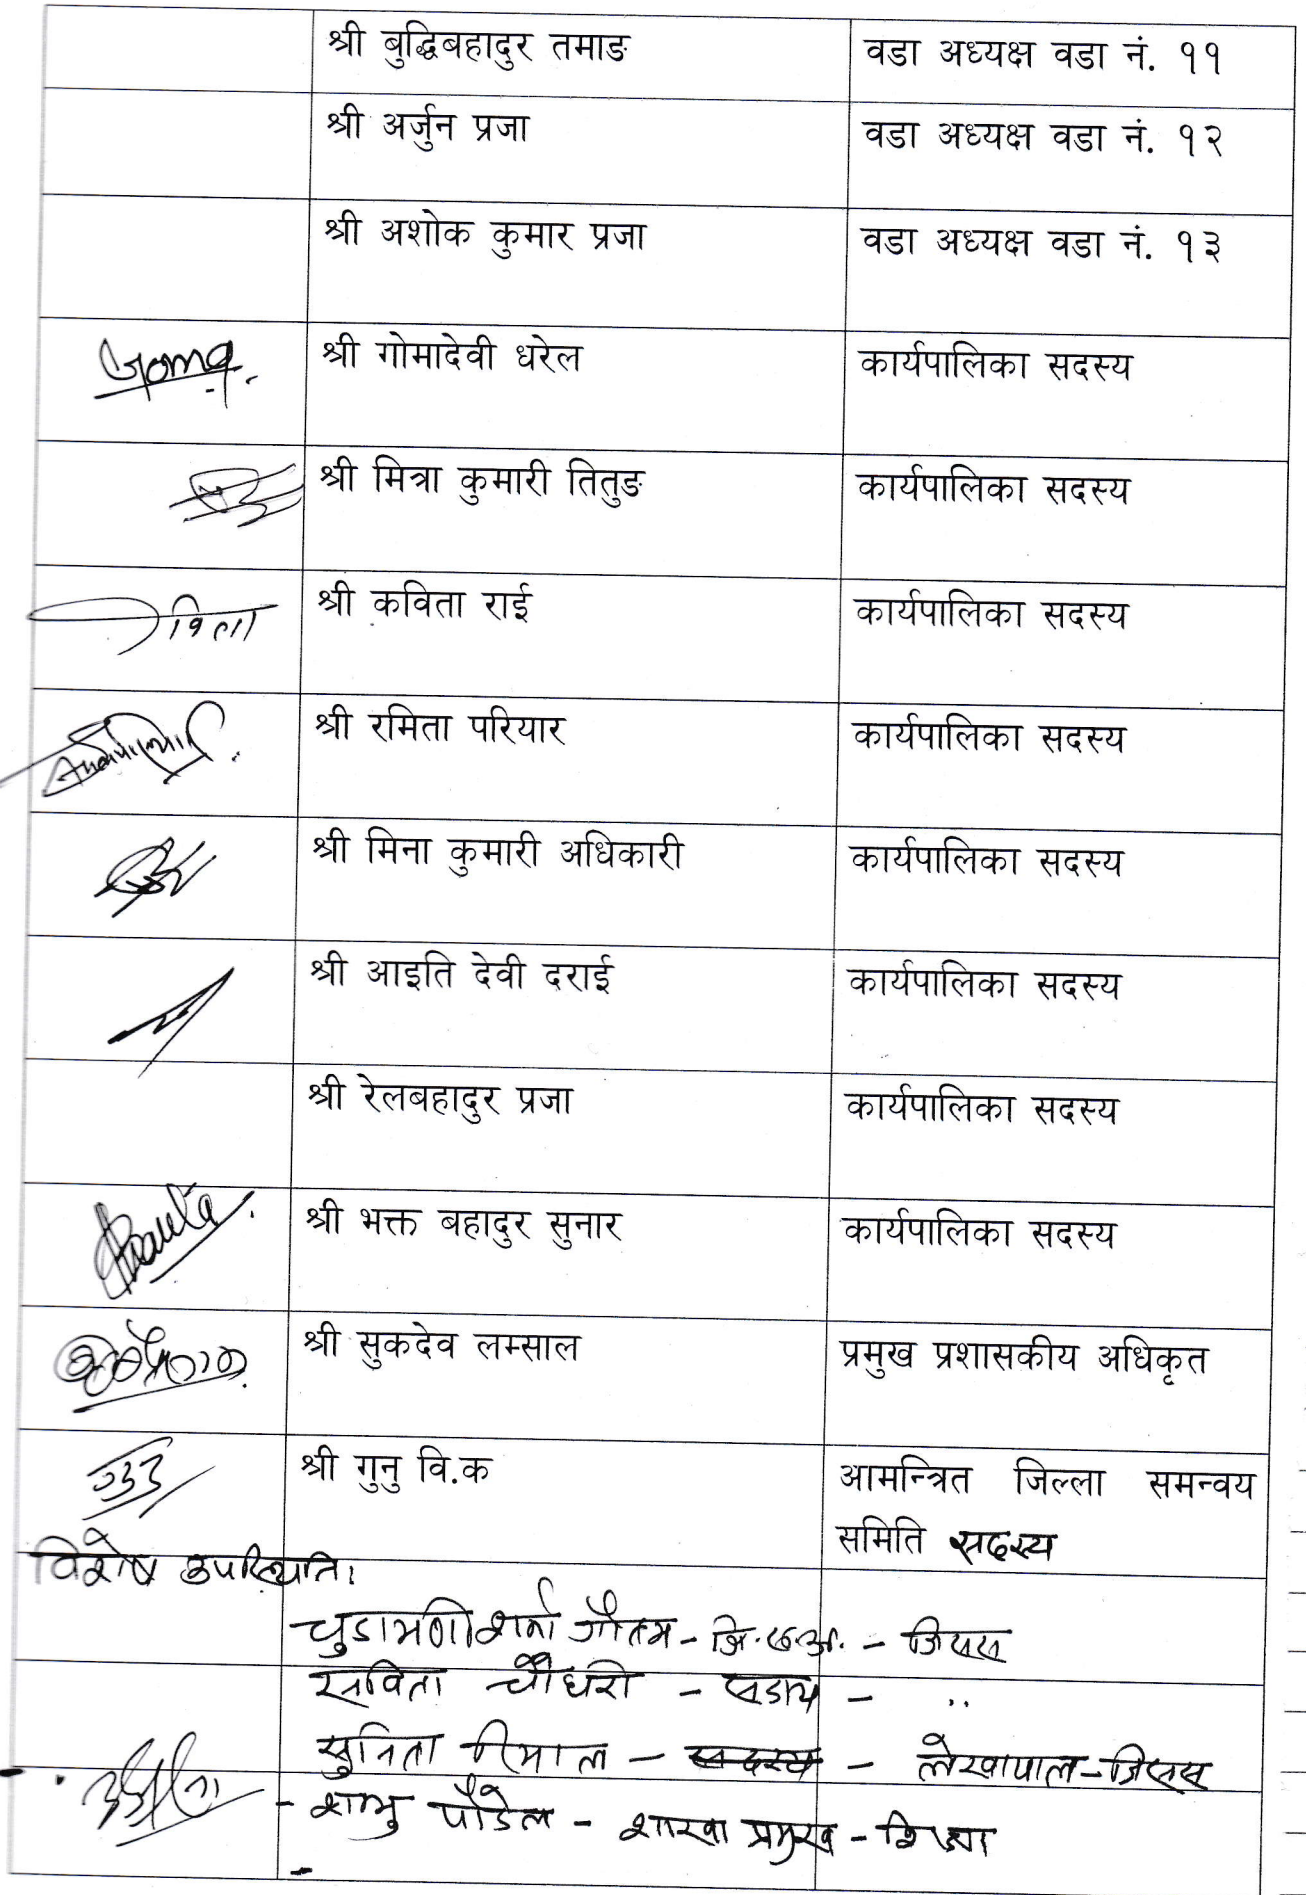 श्री बुद्धिबहादुर तमाङ वडा अध्यक्ष वडा नं. ११
श्री अर्जुन प्रजा वडा अध्यक्ष वडा नं. १२
श्री अशोक कुमार प्रजा वडा अध्यक्ष वडा नं. १३
Goma श्री गोमादेवी धरेल कार्यपालिका सदस्य
श्री मित्रा कुमारी तितुङ कार्यपालिका सदस्य
श्री कविता राई कार्यपालिका सदस्य
श्री रमिता परियार कार्यपालिका सदस्य
श्री मिना कुमारी अधिकारी कार्यपालिका सदस्य
श्री आइति देवी दराई कार्यपालिका सदस्य
श्री रेलबहादुर प्रजा कार्यपालिका सदस्य
श्री भक्त बहादुर सुनार कार्यपालिका सदस्य
श्री सुकदेव लम्साल प्रमुख प्रशासकीय अधिकृत
श्री गुनु वि.क आमन्त्रित जिल्ला समन्वय
समिति सदस्य
विशेष उपस्थिति।
चुडामणी शर्मा गौतम - जि.स.अ. - जिसस
सविता चौधरी - - ..
सुनिता रिमाल - सदस्य - लेखापाल - जिसस
- शम्भु पौडेल - शाखा प्रमुख - शिक्षा